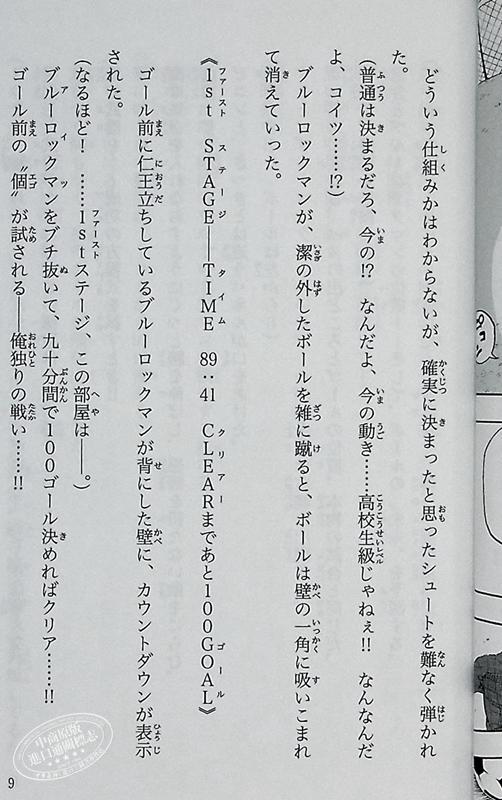 どういう仕組みかはわからないが、確実に決まったと思ったシュートを難なく弾かれ
た。
(普通は決まるだろ、今の!? なんだよ、今の動き……高校生級じゃねぇ!! なんなんだ
よ、コイツ……!?)
ブルーロックマンが、潔の外したボールを雑に蹴ると、ボールは壁の一角に吸いこまれ
て消えていった。
《1st STAGE――TIME 89:41 CLEARまであと100GOAL》
ゴール前に仁王立ちしているブルーロックマンが背にした壁に、カウントダウンが表示
された。
(なるほど! ……1stステージ、この部屋は――。)
ブルーロックマンをブチ抜いて、九十分間で100ゴール決めればクリア……!!
ゴール前の〝個〟が試される――俺独りの戦い……!!
9
中商原版
進口通關標志